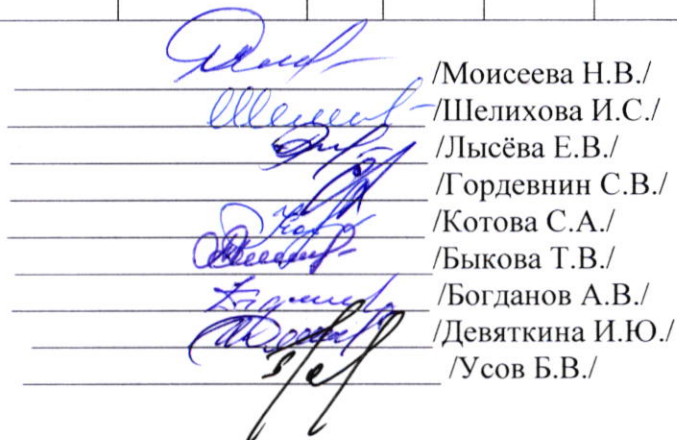 /Моисеева Н.В./
/Шелихова И.С./
/Лысёва Е.В./
/Гордевнин С.В./
/Котова С.А./
/Быкова Т.В./
/Богданов А.В./
/Девяткина И.Ю./
/Усов Б.В./